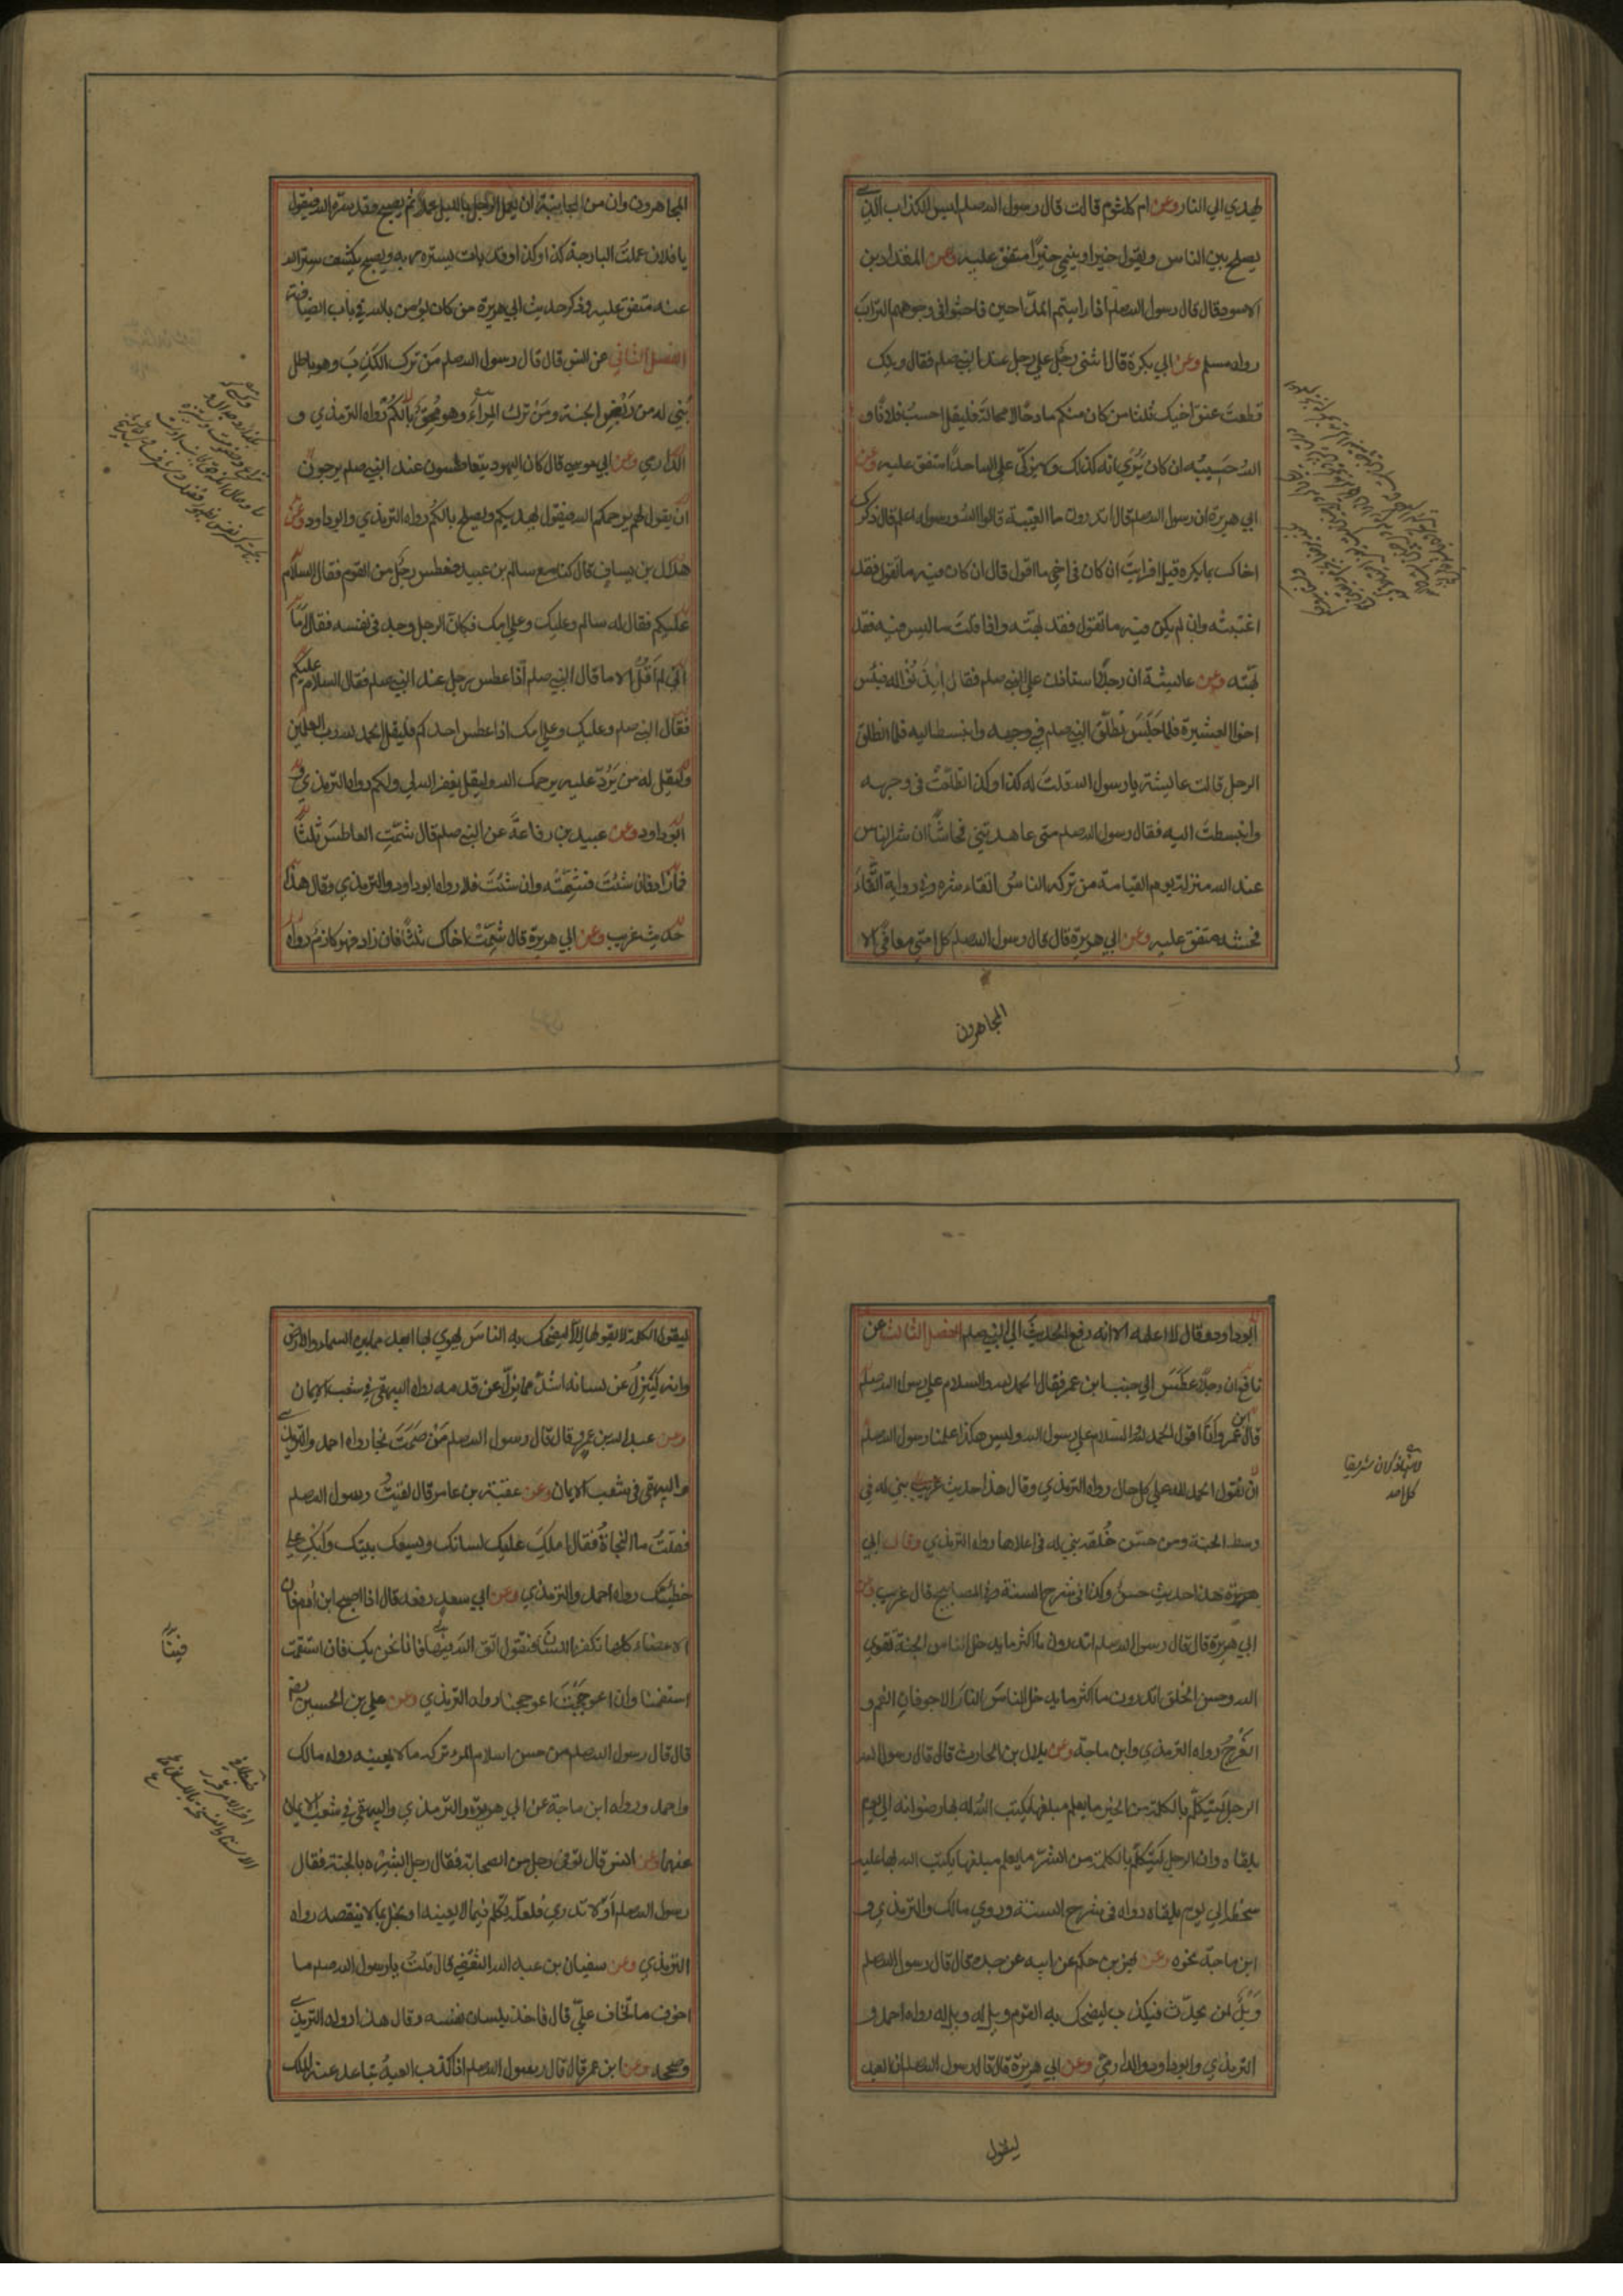 يهدي الي النار وعن ام كلثوم قالت قال رسول الله صلم ليس الكذاب الذي
يصلح بين الناس ويقول خيرا وينمي خيرًا متفق عليه وعن المقداد بن
الاسود قال قال رسول الله صلم اذا رايتم المدّاحين فاحثوا في وجوههم التراب
رواه مسلم وعن ابي بكرة قال اثنى رجل علي رجل عند النبي صلم فقال ويلك
قطعت عنق اخيك ثلثا من كان منكم مادحًا لا محالة فليقل احسب فلانًا و
الله حسيبه ان كان يُرَي انه كذلك ولا يزكّي علي الله احدًا متفق عليه وعن
ابي هريرة ان رسول الله صلم قال اتدرون ما الغيبة قالوا الله ورسوله اعلم قال ذكرك
اخاك بما يكره قيل افرايت ان كان في اخي ما اقول قال ان كان فيه ما تقول فقد
اغتبته وان لم يكن فيه ما تقول فقد بهته واذا قلت ما ليس فيه فقد
بهته وعن عائيشة ان رجلًا استاذن علي النبي صلم فقال ائذنوا له فبئس
اخوا العشيرة فلما جلس تطلّق النبي صلم في وجهه وانبسط اليه فلما انطلق
الرجل قالت عائيشة يا رسول الله قلت له كذا وكذا تطلّقت في وجهه
وانبسطت اليه فقال رسول الله صلم متى عاهدتني فحاشًا ان شر الناس
عند الله منزلة يوم القيامة من تركه الناس اتقاء شره وفي رواية اتقاء
فحشه متفق عليه وعن ابي هريرة قال قال رسول الله صلم كل امتي معافى الا
المجاهرون
المجاهرون وان من المجانة ان يعمل الرجل بالليل عملا ثم يصبح وقد ستره الله فيقول
يا فلان عملت البارحة كذا وكذا وقد بات يستره ربه ويصبح يكشف ستر الله
عنه متفق عليه وذكر حديث ابي هريرة من كان يؤمن بالله في باب الضيافة
الفصل الثاني عن انس قال قال رسول الله صلم من ترك الكذب وهو باطل
بُني له من ربض الجنة ومن ترك المراء وهو محق رواه الترمذي و
الداري وعن ابي موسي قال كان اليهود يتعاطسون عند النبي صلم يرجون
ان يقول لهم يرحمكم الله فيقول يهديكم ويصلح بالكم رواه الترمذي وابو داود وعن
هلال بن يساف قال كنا مع سالم بن عبيد فعطس رجل من القوم فقال السلام
عليكم فقال له سالم وعليك وعلي امك فكان الرجل وجد في نفسه فقال اما
اني لم اقل الا ما قال النبي صلم اذا عطس رجل عند النبي صلم فقال السلام عليكم
فقال النبي صلم وعليك وعلي امك اذا عطس احدكم فليقل الحمد لله رب العلمين
وليقل له من يردّ عليه يرحمك الله وليقل يغفر الله لي ولكم رواه الترمذي و
ابو داود وعن عبيد بن رفاعة عن النبي صلم قال شمّت العاطس ثلثًا
فما زاد فان شئت فشمّته وان شئت فلا رواه ابو داود والترمذي وقال هذا
حديث غريب وعن ابي هريرة قال شمّت اخاك ثلثًا فان زاد فهو زكام رواه
ابو داود وقال لا اعلمه الا انه رفع الحديث الي النبي صلم الفصل الثالث عن
نافع ان رجلًا عطس الي جنب ابن عمر فقال الحمد لله والسلام علي رسول الله صلم
قال ابن عمر وانا اقول الحمد لله والسلام علي رسول الله وليس هكذا علمنا رسول الله صلم
ان نقول الحمد لله علي كل حال رواه الترمذي وقال هذا حديث غريب بني له في
وسط الجنة ومن حسّن خُلقه بني له في اعلاها رواه الترمذي
هذا حديث حسن وكذا في شرح السنة وفي المصابيح قال غريب وعن
ابي هريرة قال قال رسول الله صلم اتدرون ما اكثر ما يدخل الناس الجنة تقوي
الله وحسن الخلق اتدرون ما اكثر ما يدخل الناس النار الاجوفان الفم و
الفرج رواه الترمذي وابن ماجة وعن بلال بن الحارث قال قال رسول الله
الرجل ليتكلم بالكلمة من الخير ما يعلم مبلغها يكتب الله له بها رضوانه الي يوم
يلقاه وان الرجل ليتكلم بالكلمة من الشر ما يعلم مبلغها يكتب الله بها عليه
سخطه الي يوم يلقاه رواه في شرح السنة وروي مالك والترمذي و
ابن ماجة نحوه وعن بهز بن حكيم عن ابيه عن جده قال قال رسول الله صلم
ويل لمن يحدّث فيكذب ليضحك به القوم ويل له ويل له رواه احمد و
الترمذي وابو داود والدارمي وعن ابي هريرة قال قال رسول الله صلم ان العبد
ليقول
ليقول الكلمة لا يقولها الا ليضحك به الناس يهوي بها ابعد مما بين السماء والارض
وانه ليزل عن لسانه اشد مما يزل عن قدمه رواه البيهقي في شعب الايمان
وعن عبد الله بن عمرو قال قال رسول الله صلم من صمت نجا رواه احمد والترمذي
والبيهقي في شعب الايمان وعن عقبة بن عامر قال لقيت رسول الله صلم
فقلت ما النجاة فقال املك عليك لسانك وليسعك بيتك وابك علي
خطيئتك رواه احمد والترمذي وعن ابي سعيد رفعه قال اذا اصبح ابن ادم فان
الاعضاء كلها تكفر اللسان فتقول اتق الله فينا فانا نحن بك فان استقمت
استقمنا وان اعوججت اعوججنا رواه الترمذي وعن علي بن الحسين
قال قال رسول الله صلم من حسن اسلام المرء تركه ما لا يعنيه رواه مالك
واحمد ورواه ابن ماجة عن ابي هريرة والترمذي والبيهقي في شعب الايمان
عنهما وعن انس قال توفي رجل من الصحابة فقال رجل ابشر بالجنة فقال
رسول الله صلم اولا تدري فلعله تكلم فيما لا يعنيه او بخل بما لا ينقصه رواه
الترمذي وعن سفيان بن عبد الله الثقفي قال قلت يا رسول الله صلم ما
اخوف ما تخاف عليّ قال فاخذ بلسان نفسه وقال هذا رواه الترمذي
وصححه وعن ابن عمر قال قال رسول الله صلم اذا كذب العبد تباعد عنه الملك
فينا